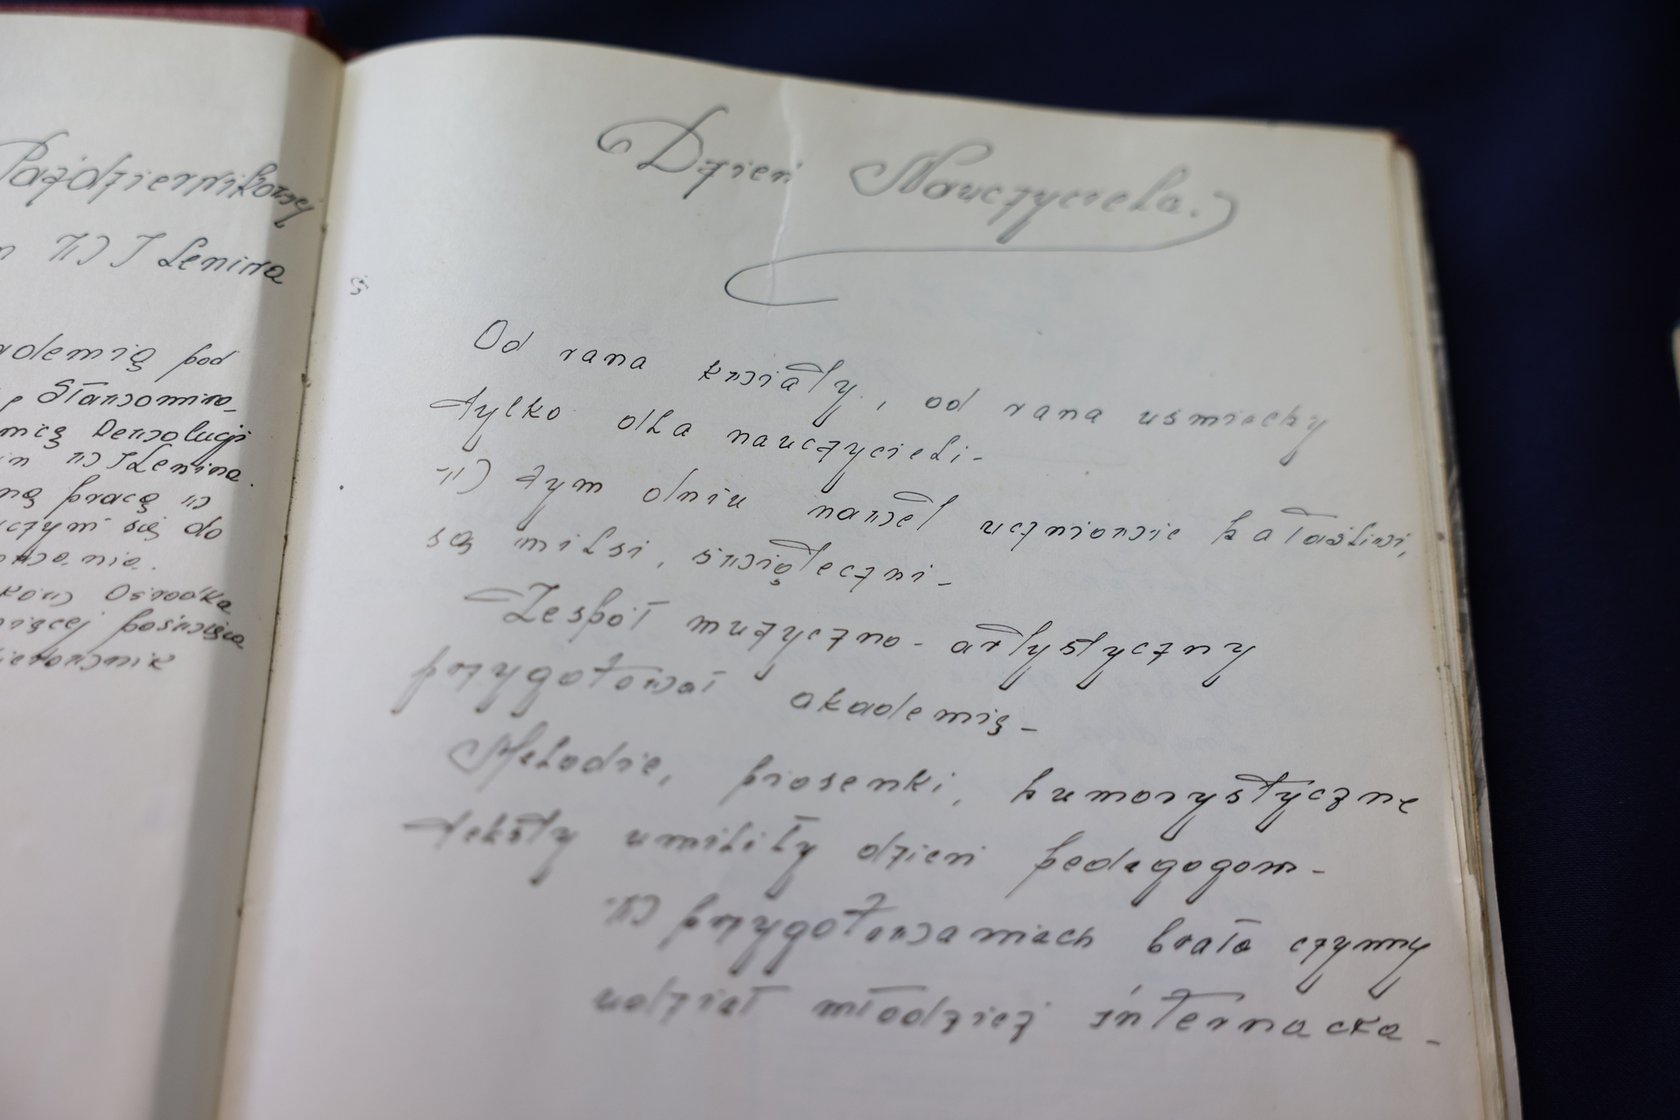 Październikowej
W I Lenina
pod
Sławomira
Rewolucji
W I Lenina.
pracę w
czym się do
Ośrodka
więcej poświęca
Dzień Nauczyciela.
Od rana kwiaty, od rana uśmiechy
tylko dla nauczycieli-
W tym dniu nawet uczniowie hałaśliwi,
są milsi, świąteczni-
Zespół muzyczno-artystyczny
przygotował akademię-
Melodie, piosenki, humorystyczne
teksty umiliły dzień pedagogom-
W przygotowaniach brała czynny
udział młodzież internacka-